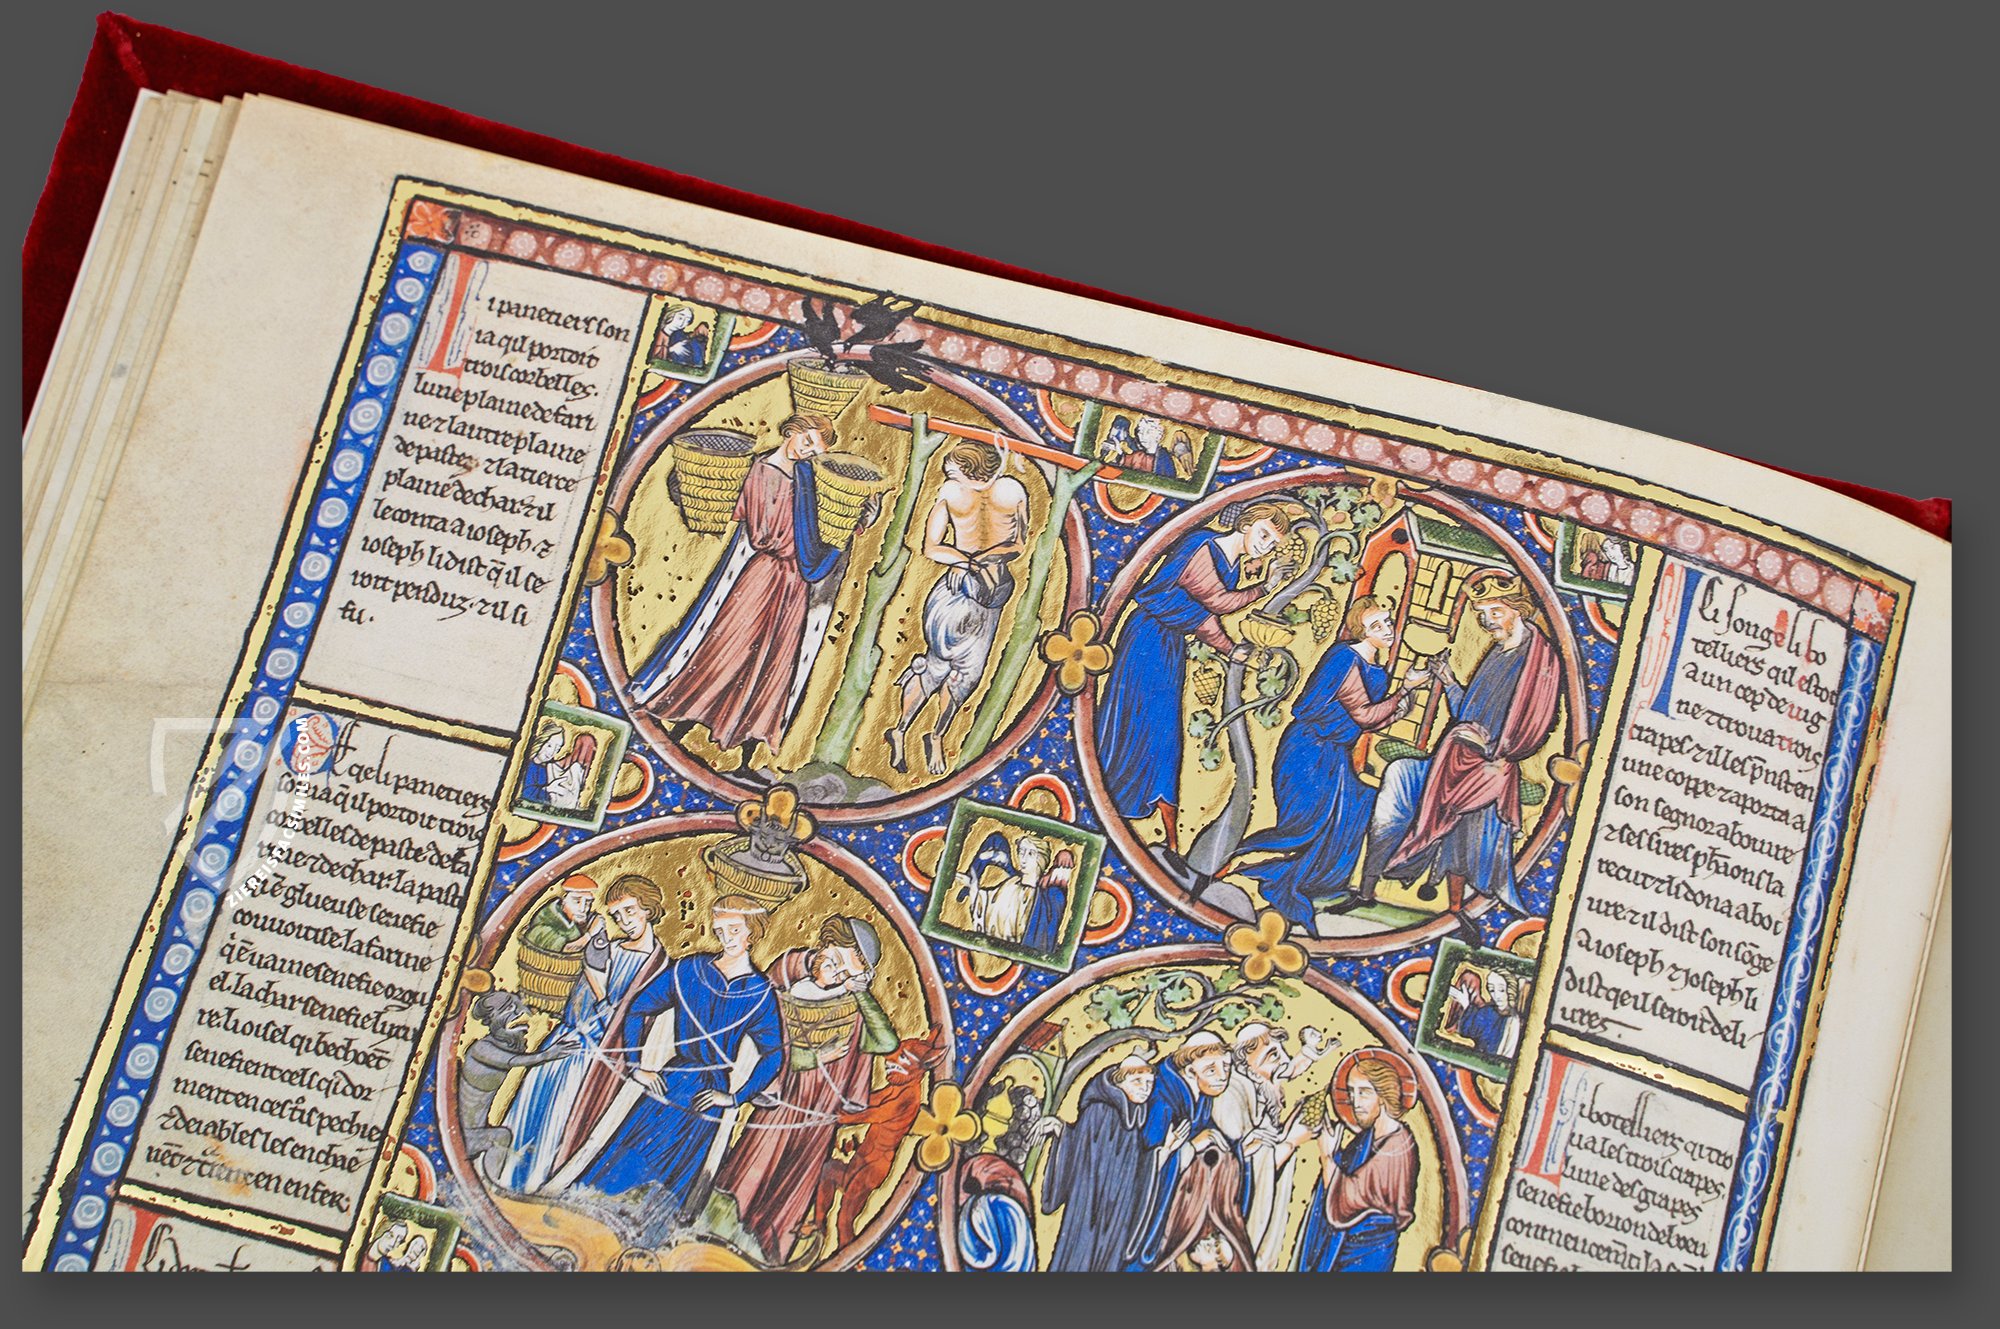 i panetiers son
ia qil portoit
trois corbelles.
lune plaine de fari
ne. ⁊ lautre plaine
de paste. ⁊ la tierce
plaine de char. ⁊ il
le conta a ioseph. ⁊
ioseph li dist q̄ il se
roit penduz. ⁊ il si
fu.
Ce qe li panetiers
sonia q̄ il portoit trois
corbelles de paste de fa
rine ⁊ de char. la paste
qi ē glueuse senefie
couuoitise. la farine
q̄ ē uaine senefie orgu
el. la char senefie luxu
re. li oisel qi bechoēt
senefient cels qi dor
ment en ces
⁊ deiables les enchaē
en enfer.
Ci songe li bo
telliers qil estoit
a un cep de uig
ne ⁊ troua trois
crapes. ⁊ il les p̄nst en
une coppe ⁊ aporta a
son segnor a boiure
⁊ ses sires phāon la
recut ⁊ li dona a boi
ure ⁊ il dist son sōge
a ioseph ⁊ ioseph li
dist qe il seroit deli
ures.
i botelliers qi tro
ua les trois crapes.
lune des grapes
senefie bon
ZIEREIS FACSIMILES.COM